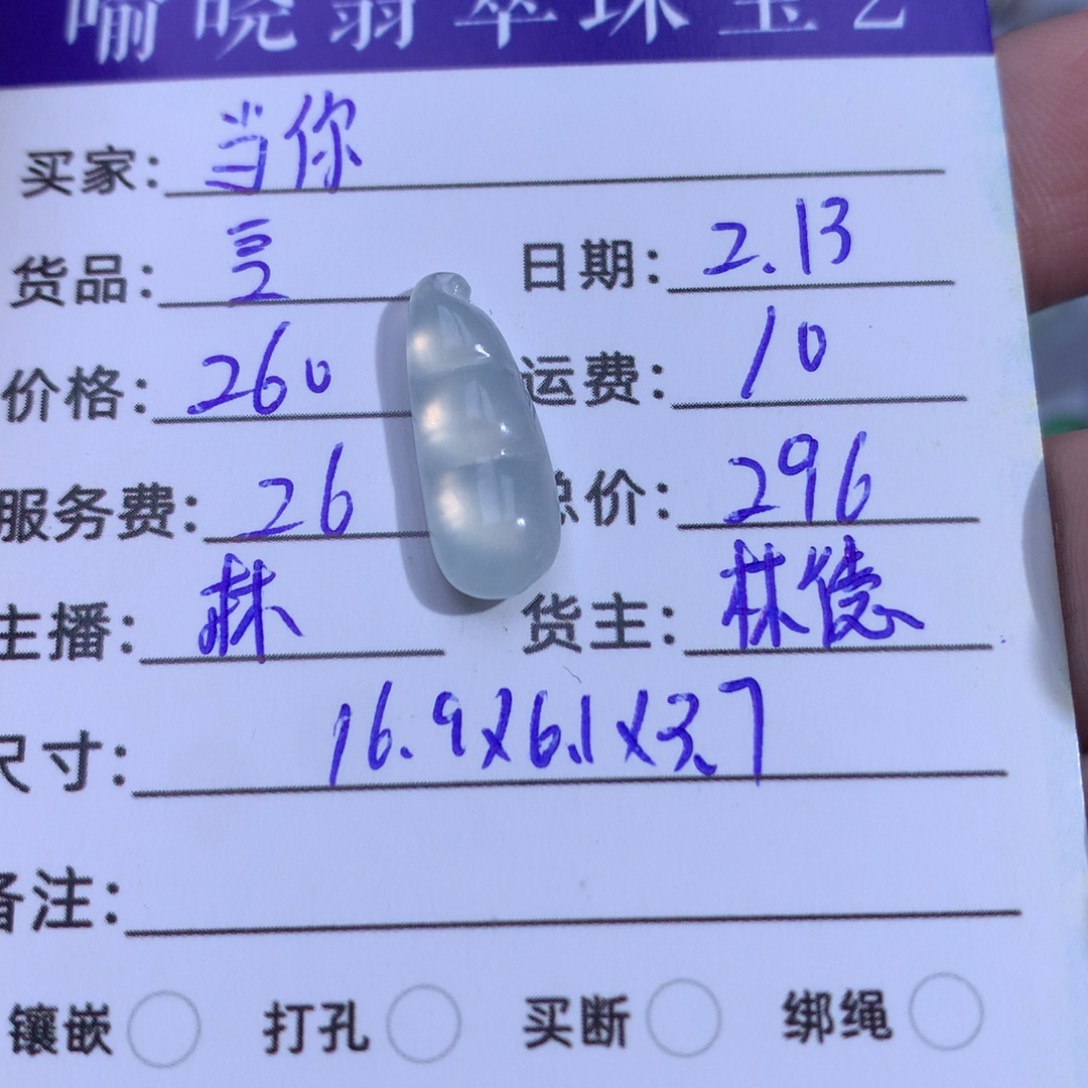 喻晓翡翠珠宝2
买家: 当你
货品: 豆 日期: 2.13
价格: 260 运费: 10
服务费: 26 总价: 296
主播: 林 货主: 林德
尺寸: 16.9x6.1x3.7
备注:
镶嵌 打孔 买断 绑绳